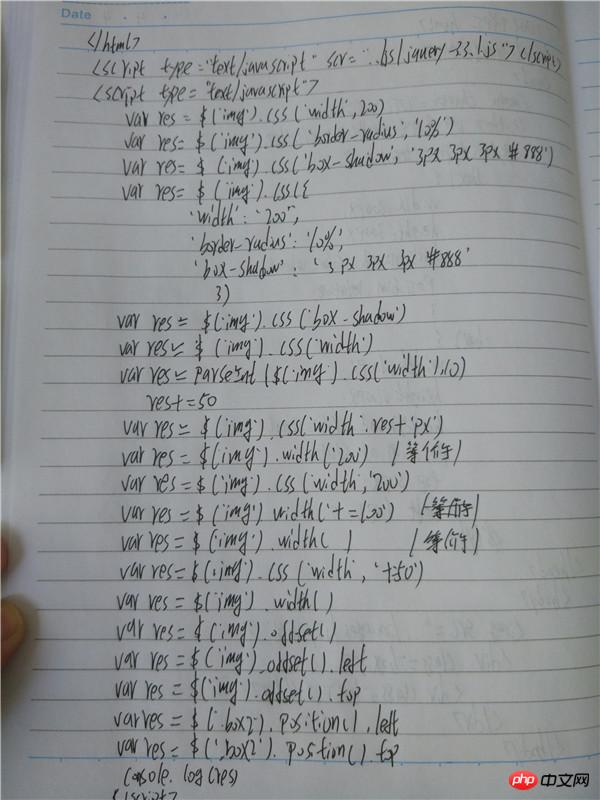 Date
</html>
<script type="text/javascript" scr="../js/jquery-3.3.1.js"></script>
<script type="text/javascript">
var res = $('img').css('width',200)
var res= $('img').css('border-radius','10%')
var res= $('img').css('box-shadow','3px 3px 3px #888')
var res= $('img').css({
'width':'200',
'border-radius':'10%',
'box-shadow':'3px 3px 3px #888'
})
var res = $('img').css('box-shadow')
var res = $('img').css('width')
var res = parseInt($('img').css('width'),10)
res+=50
var res = $('img').css('width',res+'px')
var res = $('img').width('200') /等价于/
var res = $('img').css('width','200')
var res = $('img')width('+=100') /等价于/
var res = $('img').width( ) /等价于/
var res=$('img').css('width','+50')
var res = $('img').width()
var res = $('img').offset()
var res = $('img').offset().left
var res = $('img').offset().top
var res = $('.box2').position().left
var res = $('.box2').postion().top
console.log(res)
</script>
php 中文网